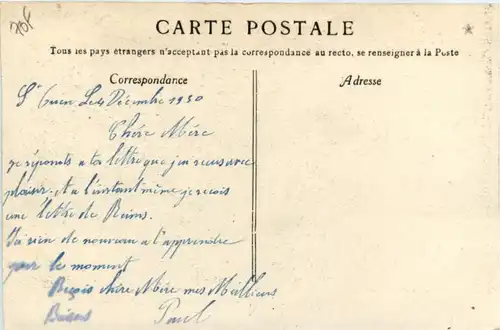 20f
CARTE POSTALE
Tous les pays étrangers n'acceptant pas la correspondance au recto, se renseigner à la Poste
Correspondance
Adresse
St Ouen Le 4 Décembre 1930
Chère Mère
je réponds a ta lettre que j'ai recus avec
plaisir. et a l'instant même je recois
une lettre de Reims.
J'ai rien de nouveau a t'apprendre
pour le moment
Reçois chère Mère mes Meilleurs
Baisers Paul